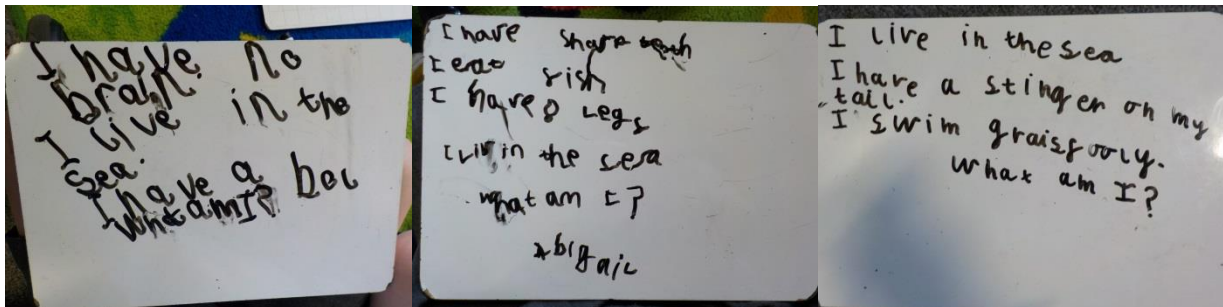 I have no
brain
I live in the
sea.
I have a
What am I?
I have sharp teeth
I eat fish
I have 8 legs
I liv in the sera
what am I?
Abigail
I live in the sea
I have a stinger on my
tail.
I swim graisfooly.
What am I?